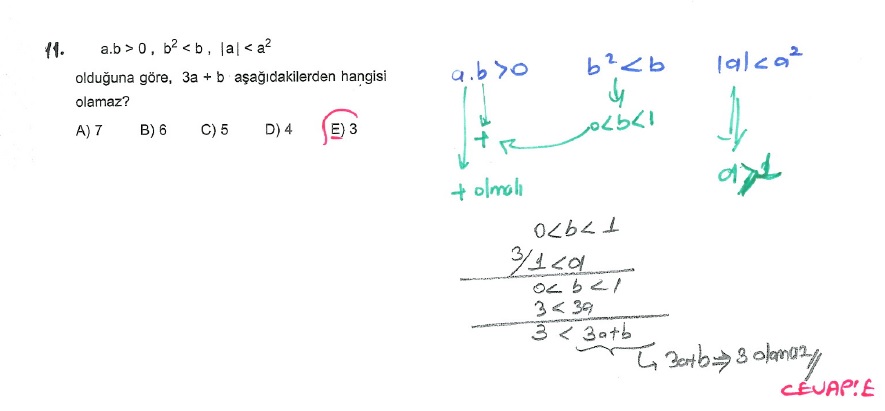 11. a.b > 0 , b² < b , |a| < a²
olduğuna göre, 3a + b aşağıdakilerden hangisi
olamaz?
A) 7 B) 6 C) 5 D) 4 E) 3
a.b > 0 b² < b |a| < a²
0<b<1
+
+ olmalı
a>1
0<b<1
3/ 1<a
0< b <1
3 < 3a
3 < 3a+b
3a+b ⇒ 3 olamaz //
CEVAP: E